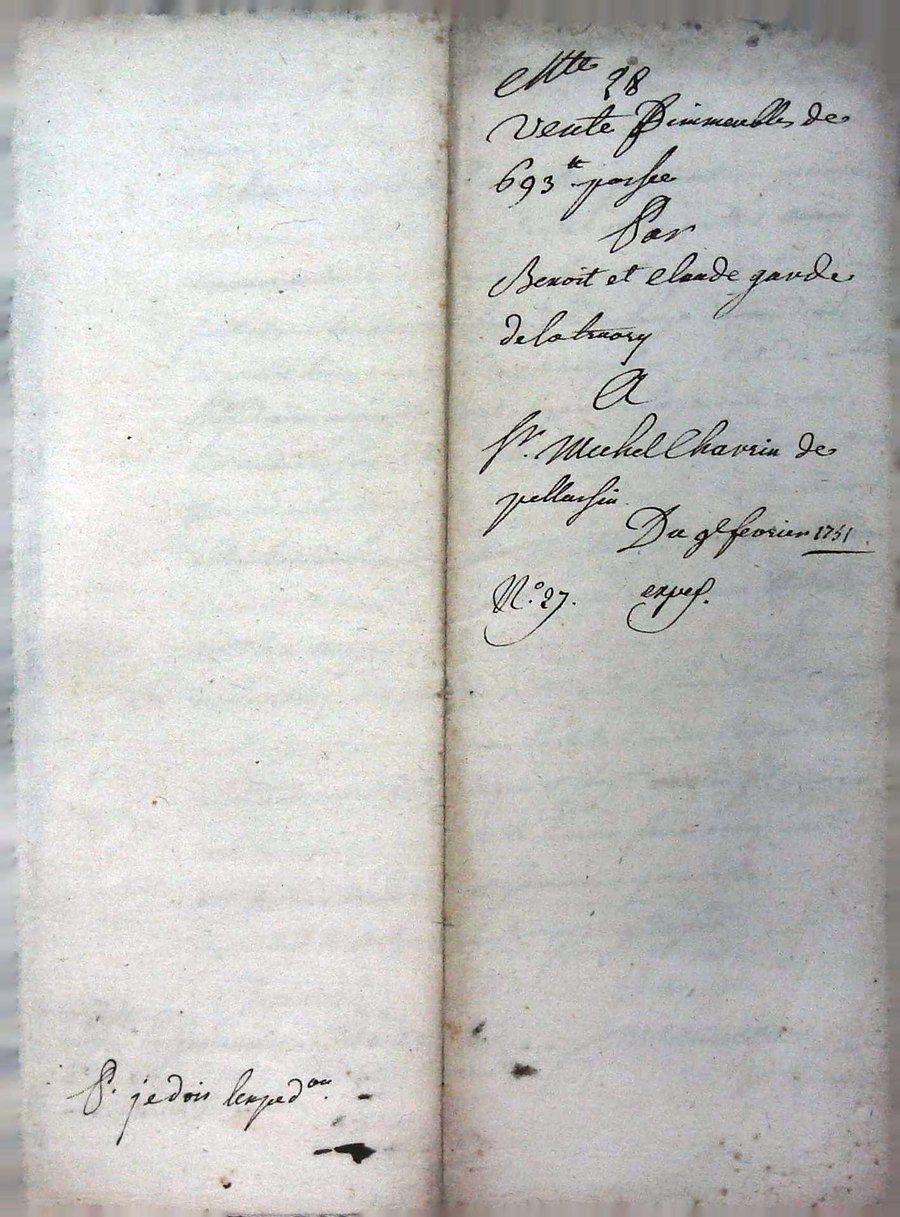 Mte 28
Vente Dimmeubles de
693tt passée
Par
Benoit et Claude garde
A
Sr. Michel Chavrin de
pellussin
Du 9e fevrier 1751
N.o 27. exped.
P. je dois lexped.on